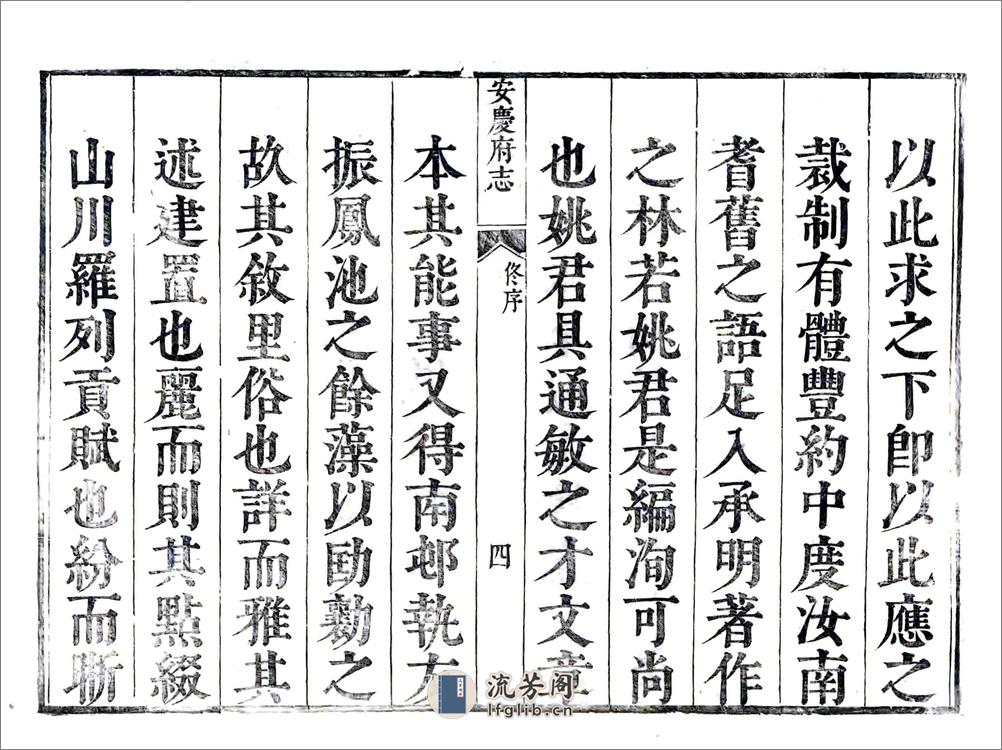 以此求之下卽以此應之
裁制有體豐約中度汝南
耆舊之語足入承明著作
之林若姚君是編洵可尚
也姚君具通敏之才文章
安慶府志
佟序
四
本其能事又得南邨執友
振鳳池之餘藻以勖勷之
故其敘里俗也詳而雅其
述建置也麗而則其點綴
山川羅列貢賦也紛而晰
流芳阁
lfglib.cn